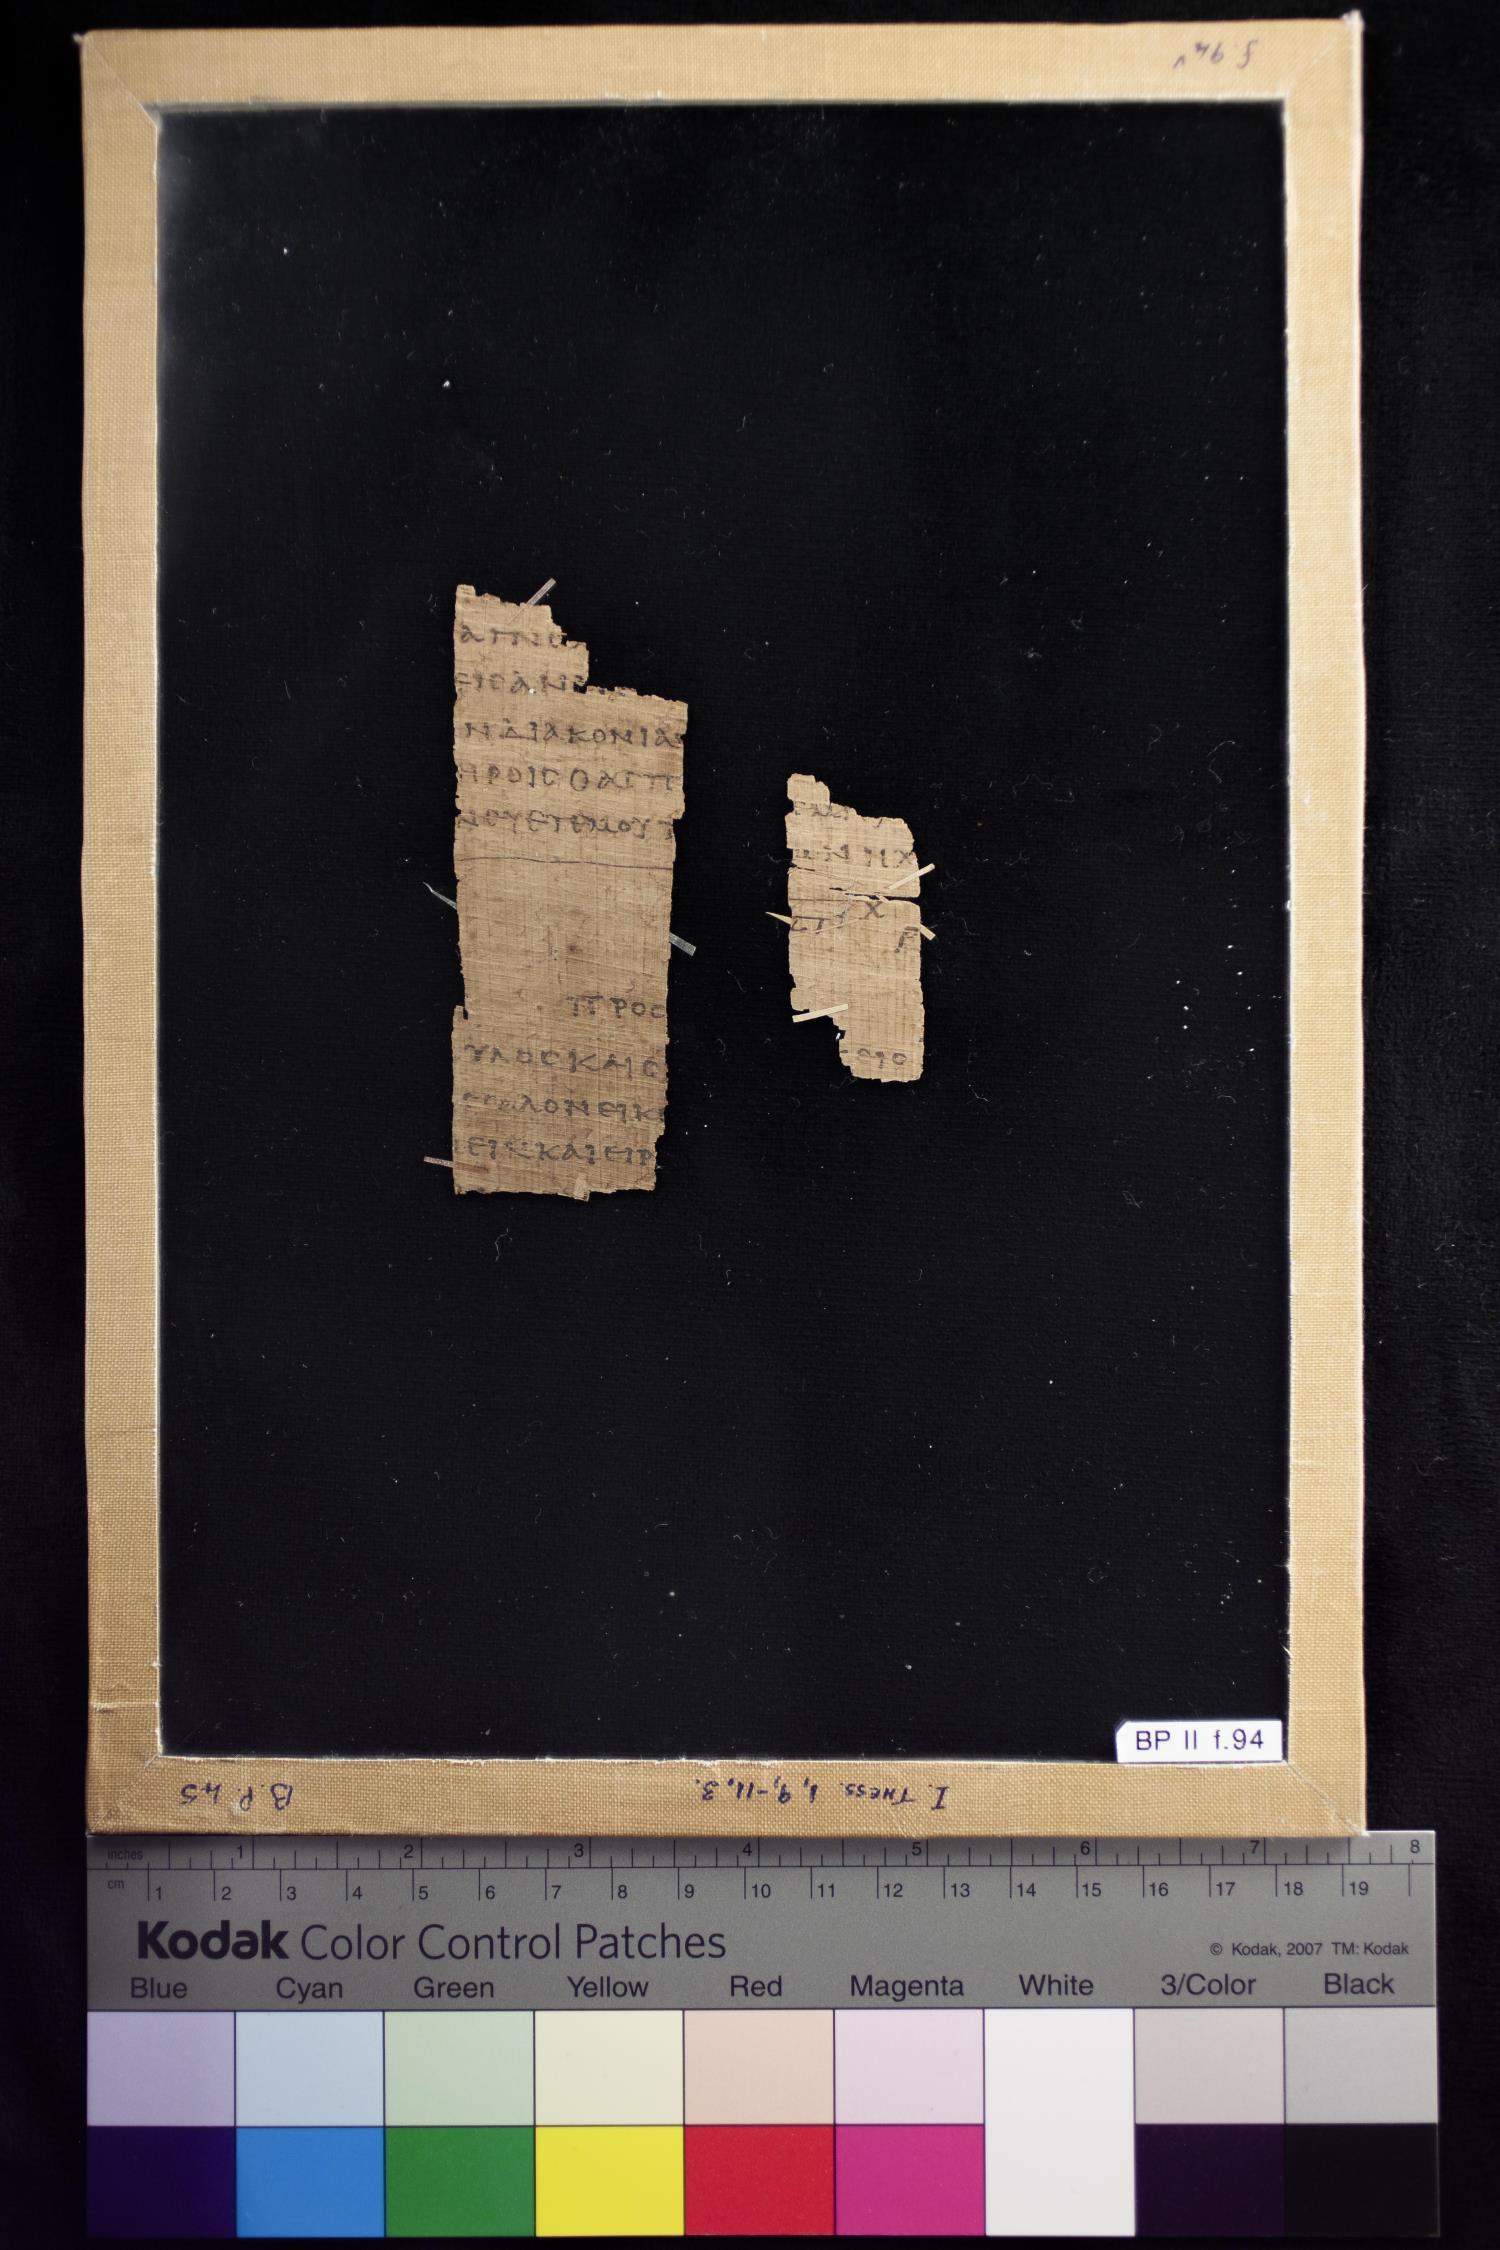 f. 94ᵛ
ΝΔΙΑΚΟΝΙΑ
ΗΡΟΙΣΘΑΙΠ
ΜΟΥΕΤΕΜΟΥΤ
ΠΡΟΣ
ΥΛΟΣΚΑΙΣ
ΛΟΝΕΙΚ
ΕΙΣΚΑΙΕΙΡ
ΝΗΧ
ΣΤΙΧ
BP II f.94
B.P. 45
I. Thess. 1,9,-11,3.
inches 1 2 3 4 5 6 7 8
cm 1 2 3 4 5 6 7 8 9 10 11 12 13 14 15 16 17 18 19
Kodak Color Control Patches
© Kodak, 2007 TM: Kodak
Blue Cyan Green Yellow Red Magenta White 3/Color Black